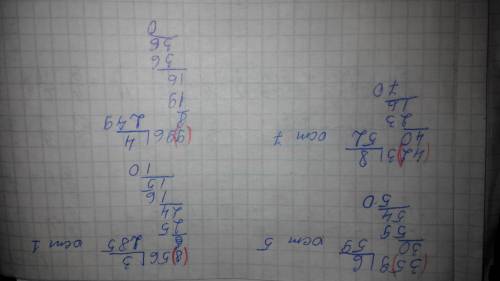 (35)9|6
30 59 ост 5
59
54
50
(8)56|3
6 285 ост 1
25
24
16
15
10
(42)3|8
40 52 ост 7
23
16
70
(9)96|4
8 249
19
16
36
36
0